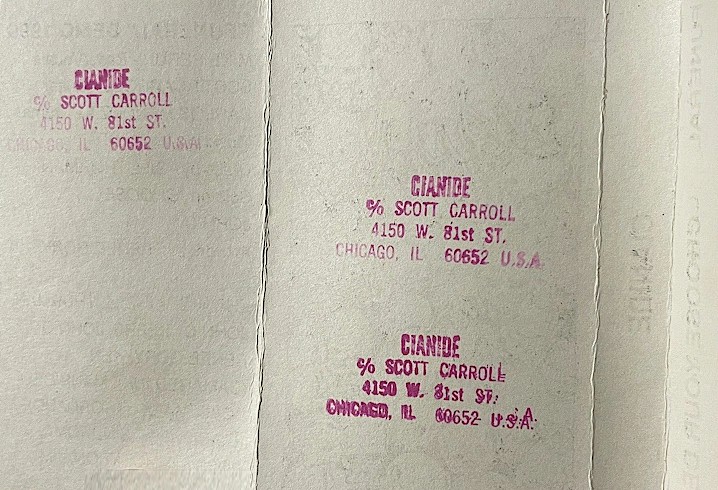 CIANIDE
℅ SCOTT CARROLL
4150 W. 81st ST.
CHICAGO, IL 60652 U.S.A.
CIANIDE
℅ SCOTT CARROLL
4150 W. 81st ST.
CHICAGO, IL 60652 U.S.A.
CIANIDE
℅ SCOTT CARROLL
4150 W. 81st ST.
CHICAGO, IL 60652 U.S.A.